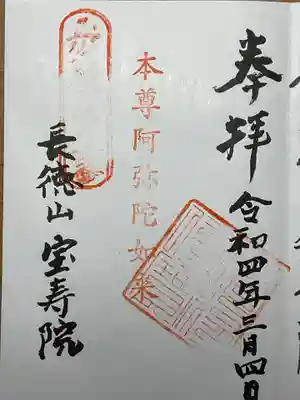 奉拝 令和四年三月四日
本尊阿弥陀如来
長徳山 宝寿院